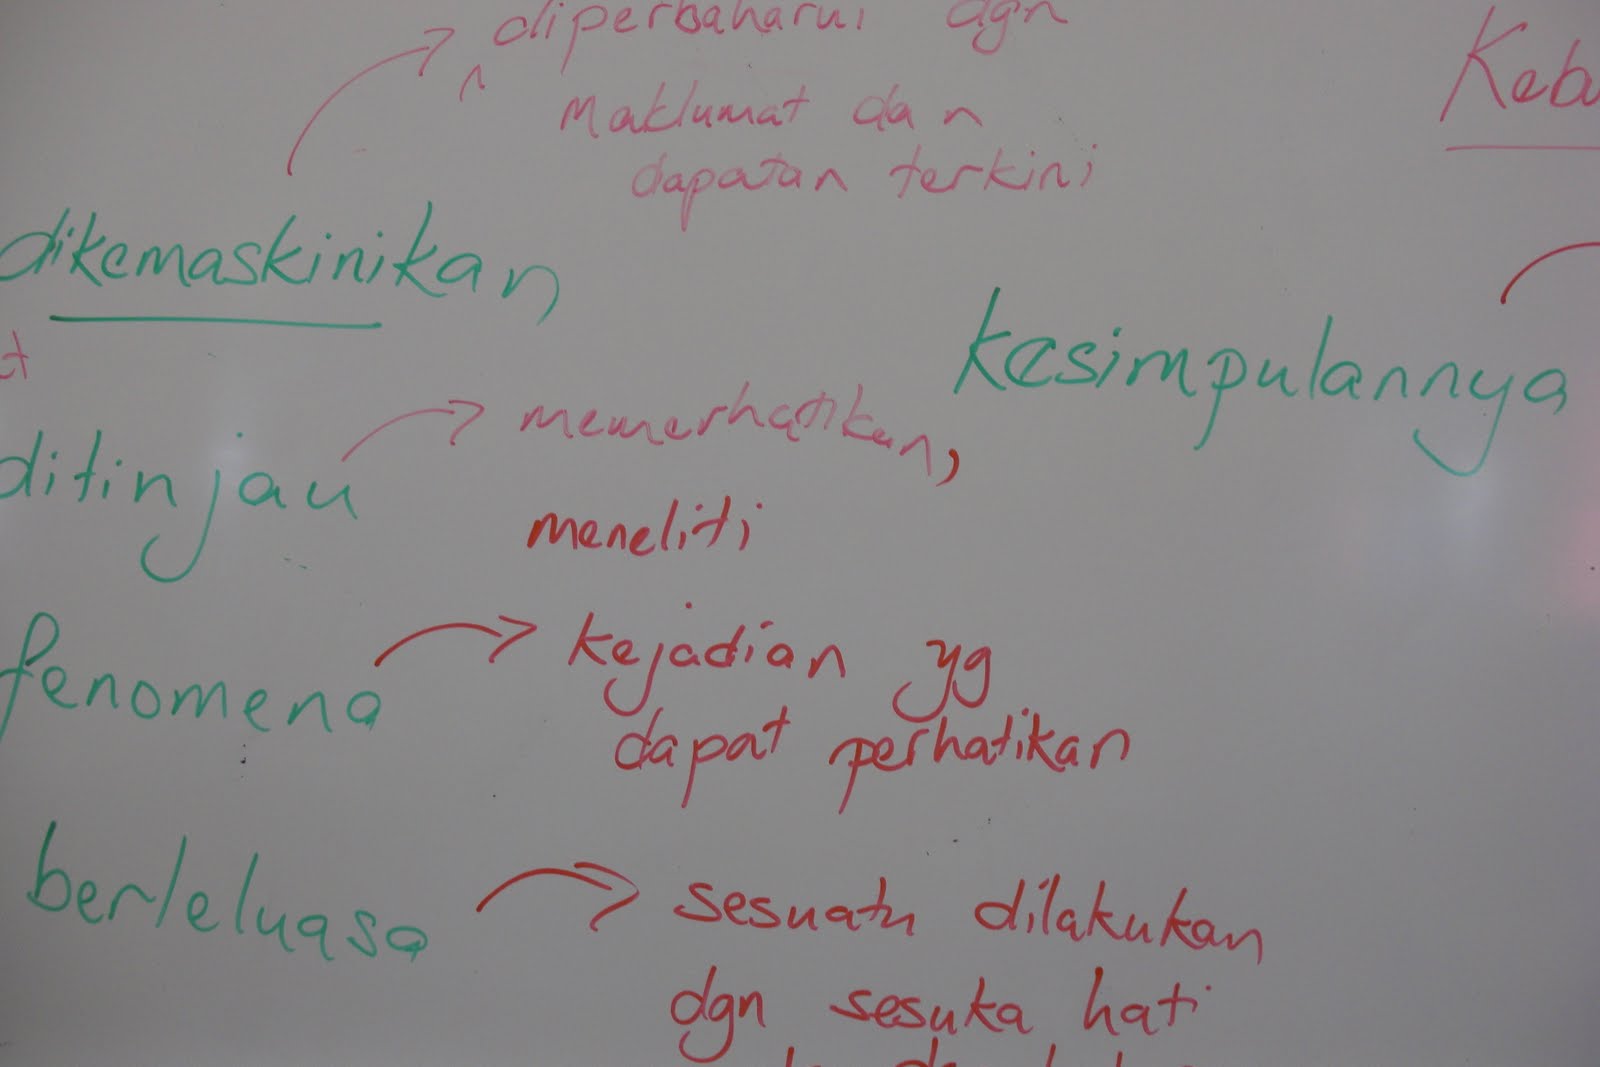 diperbaharui dgn
Maklumat dan
dapatan terkini
dikemaskinikan
kesimpulannya
ditinjau
memerhatikan,
meneliti
fenomena
kejadian yg
dapat perhatikan
berleluasa
sesuatu dilakukan
dgn sesuka hati